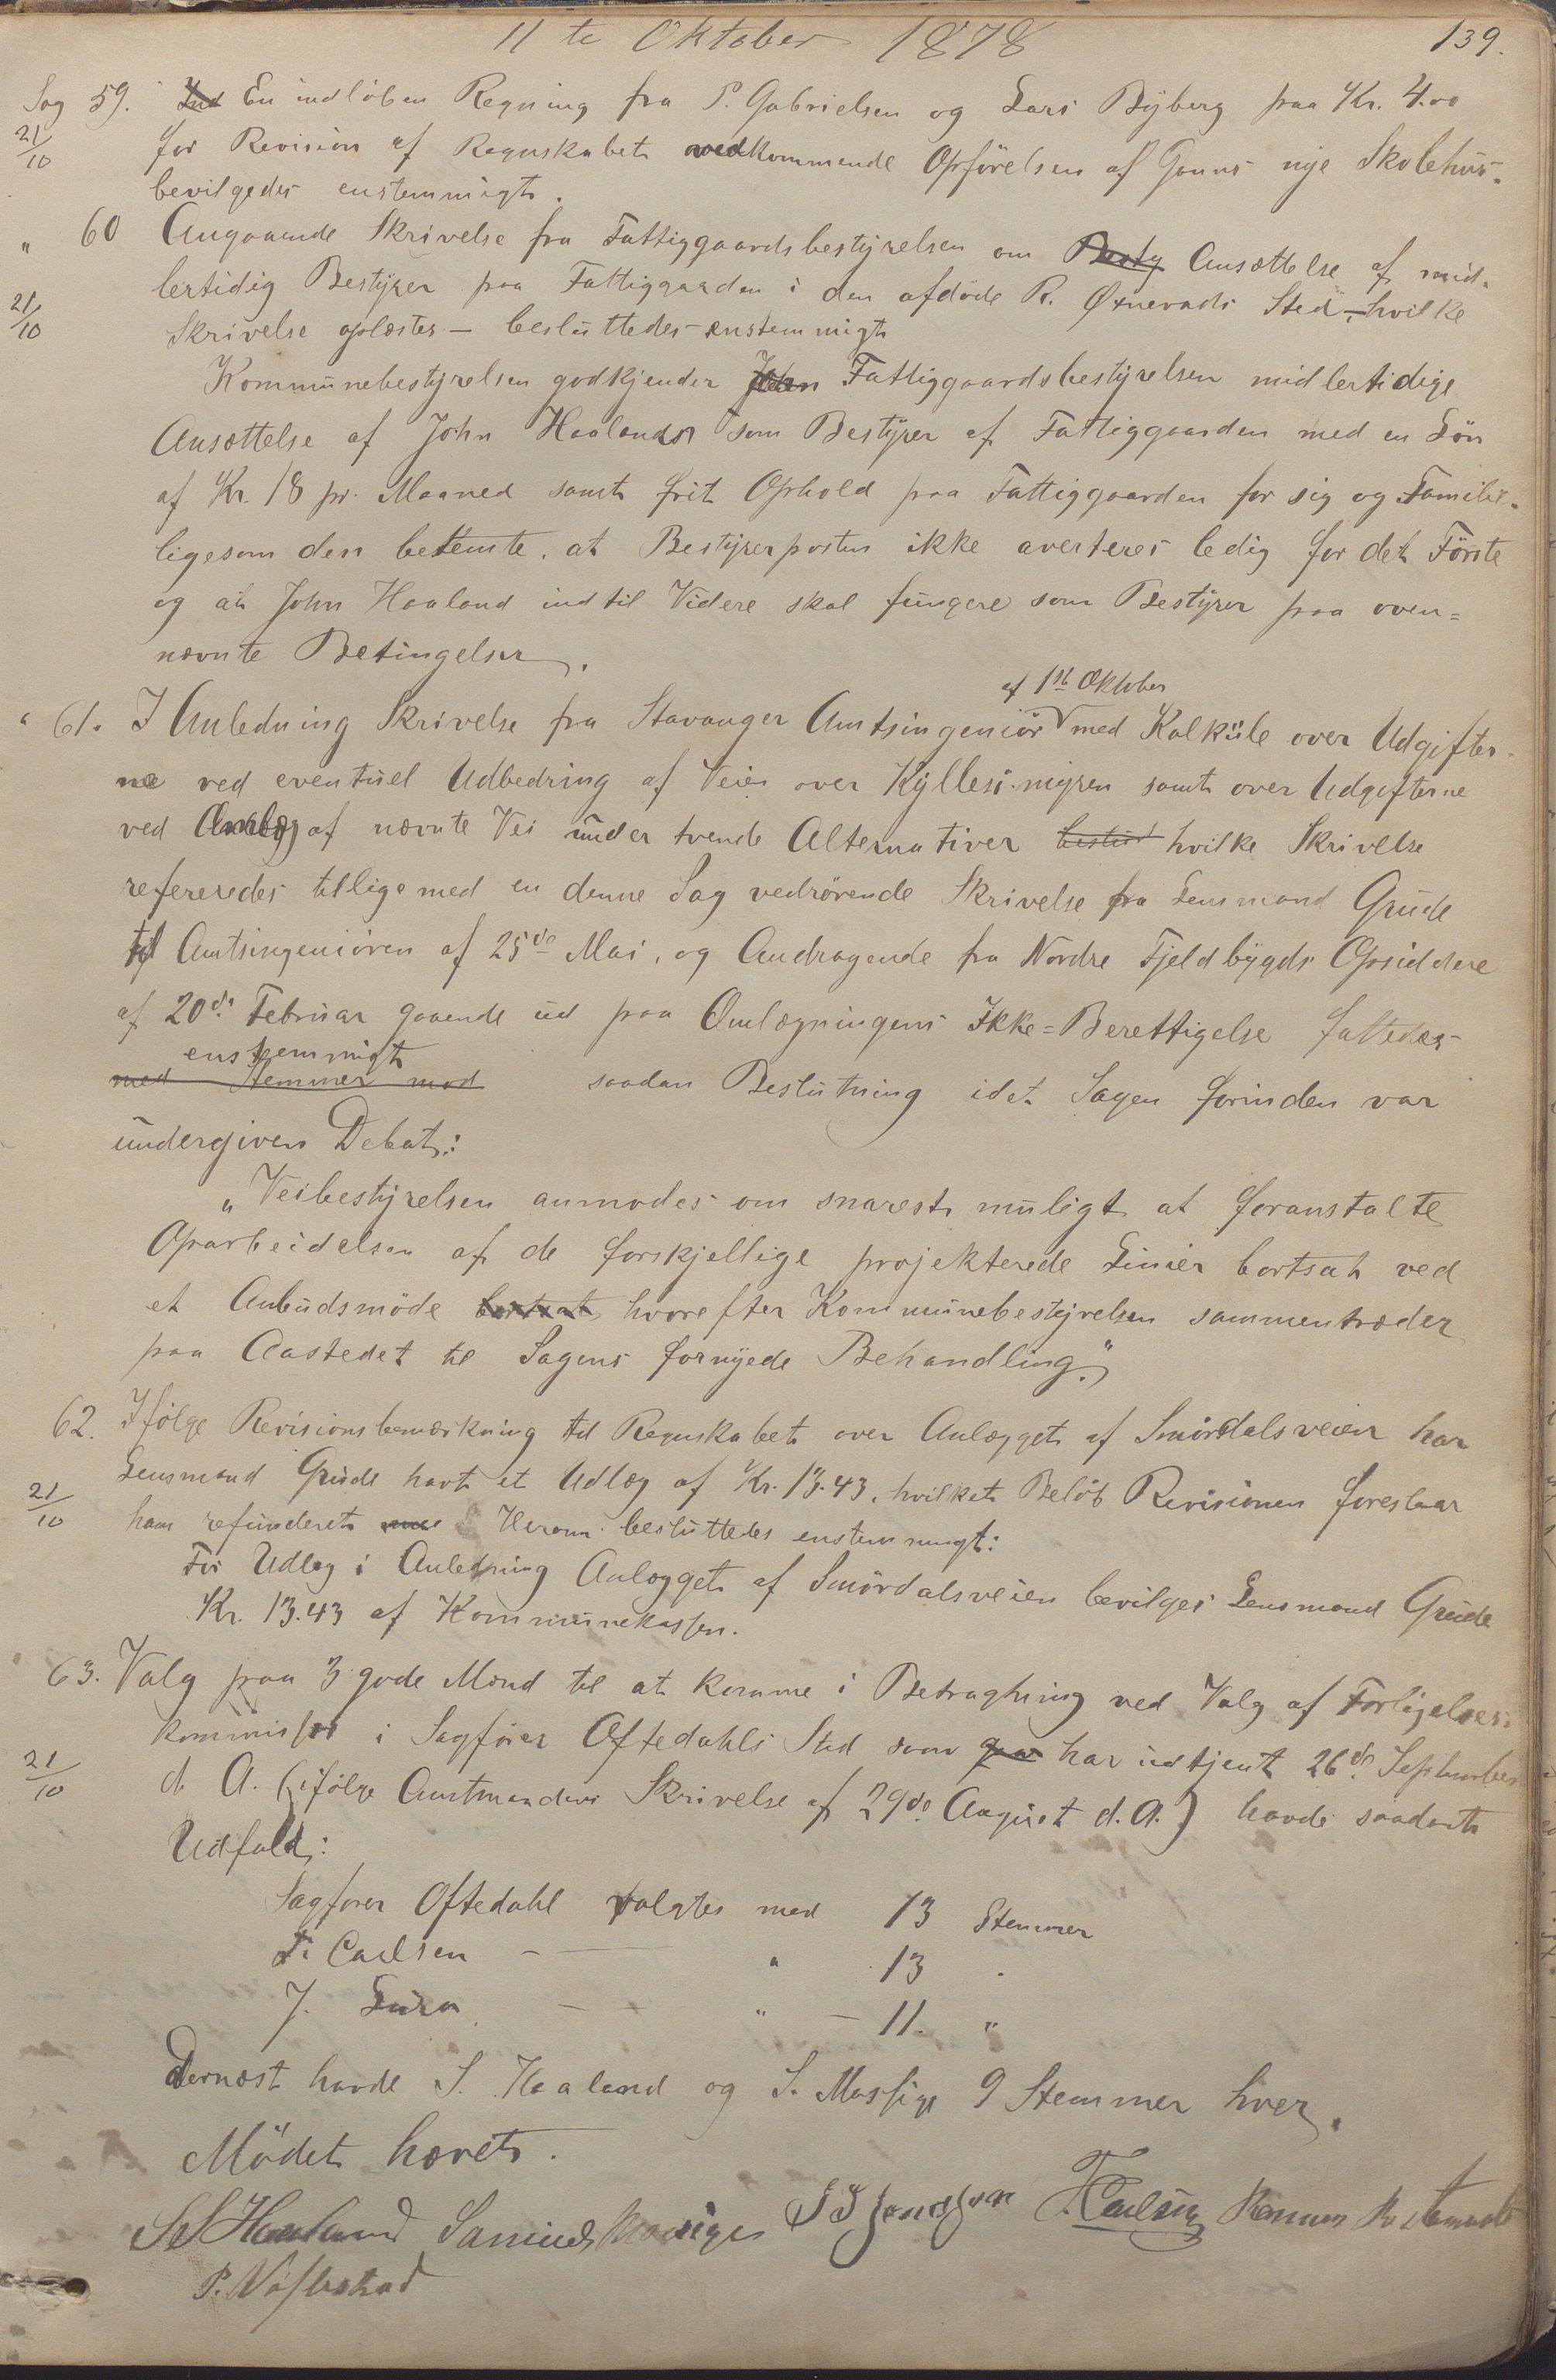 11te Oktober 1878
139.
Sag 59. Ind En indløben Regning fra P. Gabrielsen og Lars Byberg paa Kr. 4.00
21/10 for Revision af Regnskabet vedkommende Opførelsen af Gauns nye Skolehus.
bevilgedes enstemmigt.
" 60 Angaaende Skrivelse fra Fattiggaardsbestyrelsen om Besty Ansættelse af mid-
lertidig Bestyrer paa Fattiggaarden i den afdøde R. Øxnevads Sted, – hvilke
21/10 Skrivelse oplæstes – besluttedes enstemmigt
Kommunebestyrelsen godkjender John Fattiggaardsbestyrelsen midlertidige
Ansættelse af John Haaland som Bestyrer af Fattiggaarden med en Løn
af Kr. 18 pr. Maaned samt frit Ophold paa Fattiggaarden for sig og Familie.
ligesom den bestemte, at Bestyrerposten ikke averteres ledig for det Første
og at John Haaland indtil Videre skal fungere som Bestyrer paa oven=
nævnte Betingelser.
af 1ste Oktober
" 61. I Anledning Skrivelse fra Stavanger Amtsingeniør med Kalkule over Udgifter-
ne ved eventuel Udbedring af Veien over Kyllesmyren samt over Udgifterne
ved Anlæg af nævnte Vei under tvende Alternativer beslut hvilke Skrivelse
refereredes tilligemed en denne Sag vedrørende Skrivelse fra Lensmand Grude
til Amtsingeniøren af 25de Mai, og Andragende fra Nordre Fjeldbygds Opsiddere
af 20de Februar gaaende ud paa Omlægningens Ikke=Berettigelse fattedes
enstemmigt
med Stemmer mod saadan Beslutning idet Sagen forinden var
undergiven Debat:
"Veibestyrelsen anmodes om snarest muligt at foranstalte
Oparbeidelsen af de forskjellige projekterede Linier bortsat ved
et Anbudsmøde bortsat, hvorefter Kommunebestyrelsen sammentræder
paa Aastedet til Sagens fornyede Behandling."
62. Ifølge Revisionsbemærkning til Regnskabet over Anlægget af Smørdalsveien har
Lensmand Grude havt et Udlæg af Kr. 13.43, hvilket Beløb Revisionen foreslaar
21/10 ham refunderet Herom besluttedes enstemmigt:
For Udlæg i Anledning Anlægget af Smørdalsveien bevilges Lensmand Grude
Kr. 13.43 af Kommunekassen.
63. Valg paa 3 gode Mænd til at komme i Betragtning ved Valg af Forligelses-
kommissær i Sagfører Oftedahls Sted som har udtjent 26de September
21/10 d. A. (ifølge Amtmandens Skrivelse af 29de August d. A.) havde saadant
Udfald:
Sagfører Oftedahl valgtes med 13 Stemmer
T. Carlsen – " 13 "
J. Lura – " – 11. "
Dernæst havde S. Haaland og S. Mossige 9 Stemmer hver.
Mødet hævet.
S S Haaland Samuel Mossige T. Carlsen